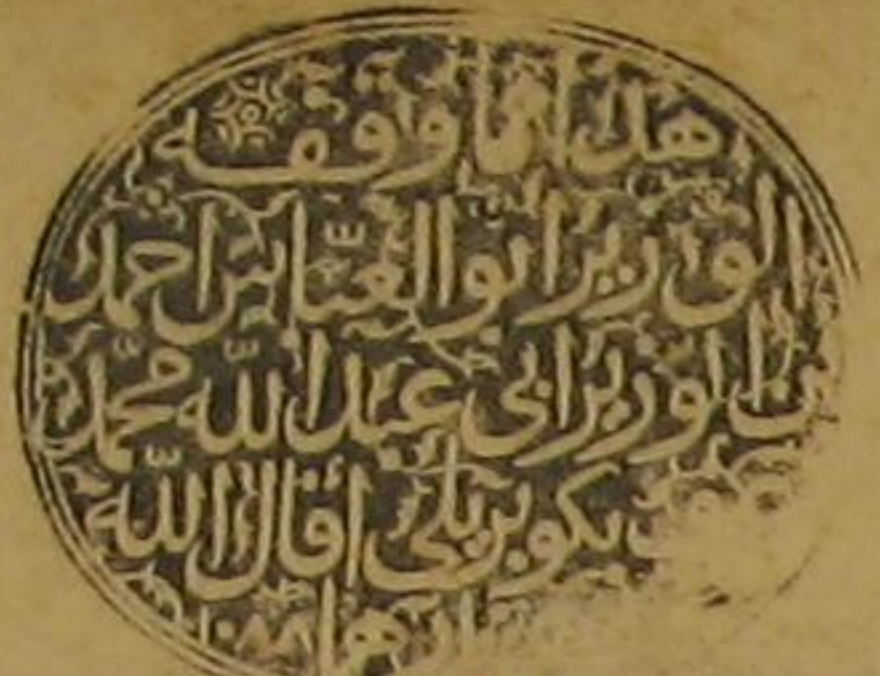 هذا مما وقفه
الوزير ابو العبّاس احمد
بن الوزير ابى عبد اللّه محمّد
بكوبريلى اقال اللّه
١٠٨٨